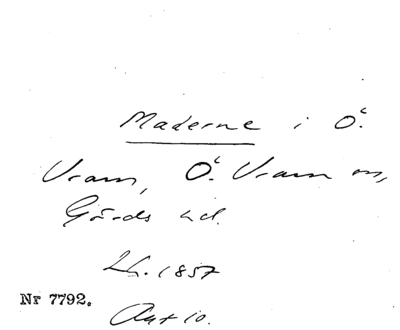 Maderne i Ö.
Vram, Ö. Vram sn,
Gärds hd.
Lh. 1857
Nr 7792.
Akt 10.